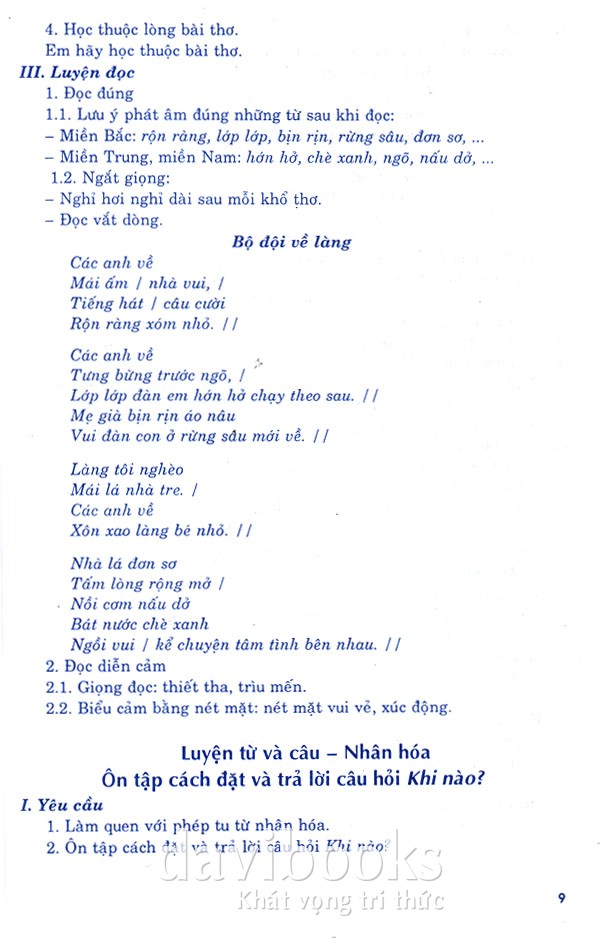 4. Học thuộc lòng bài thơ.
Em hãy học thuộc bài thơ.
III. Luyện đọc
1. Đọc đúng
1.1. Lưu ý phát âm đúng những từ sau khi đọc:
– Miền Bắc: rộn ràng, lớp lớp, bịn rịn, rừng sâu, đơn sơ, ...
– Miền Trung, miền Nam: hớn hở, chè xanh, ngõ, nấu dở, ...
1.2. Ngắt giọng:
– Nghỉ hơi nghỉ dài sau mỗi khổ thơ.
– Đọc vắt dòng.
Bộ đội về làng
Các anh về
Mái ấm / nhà vui, /
Tiếng hát / câu cười
Rộn ràng xóm nhỏ. //
Các anh về
Tưng bừng trước ngõ, /
Lớp lớp đàn em hớn hở chạy theo sau. //
Mẹ già bịn rịn áo nâu
Vui đàn con ở rừng sâu mới về. //
Làng tôi nghèo
Mái lá nhà tre. /
Các anh về
Xôn xao làng bé nhỏ. //
Nhà lá đơn sơ
Tấm lòng rộng mở /
Nồi cơm nấu dở
Bát nước chè xanh
Ngồi vui / kể chuyện tâm tình bên nhau. //
2. Đọc diễn cảm
2.1. Giọng đọc: thiết tha, trìu mến.
2.2. Biểu cảm bằng nét mặt: nét mặt vui vẻ, xúc động.
Luyện từ và câu – Nhân hóa
Ôn tập cách đặt và trả lời câu hỏi Khi nào?
I. Yêu cầu
1. Làm quen với phép tu từ nhân hóa.
2. Ôn tập cách đặt và trả lời câu hỏi Khi nào?
davibooks
Khát vọng tri thức
9